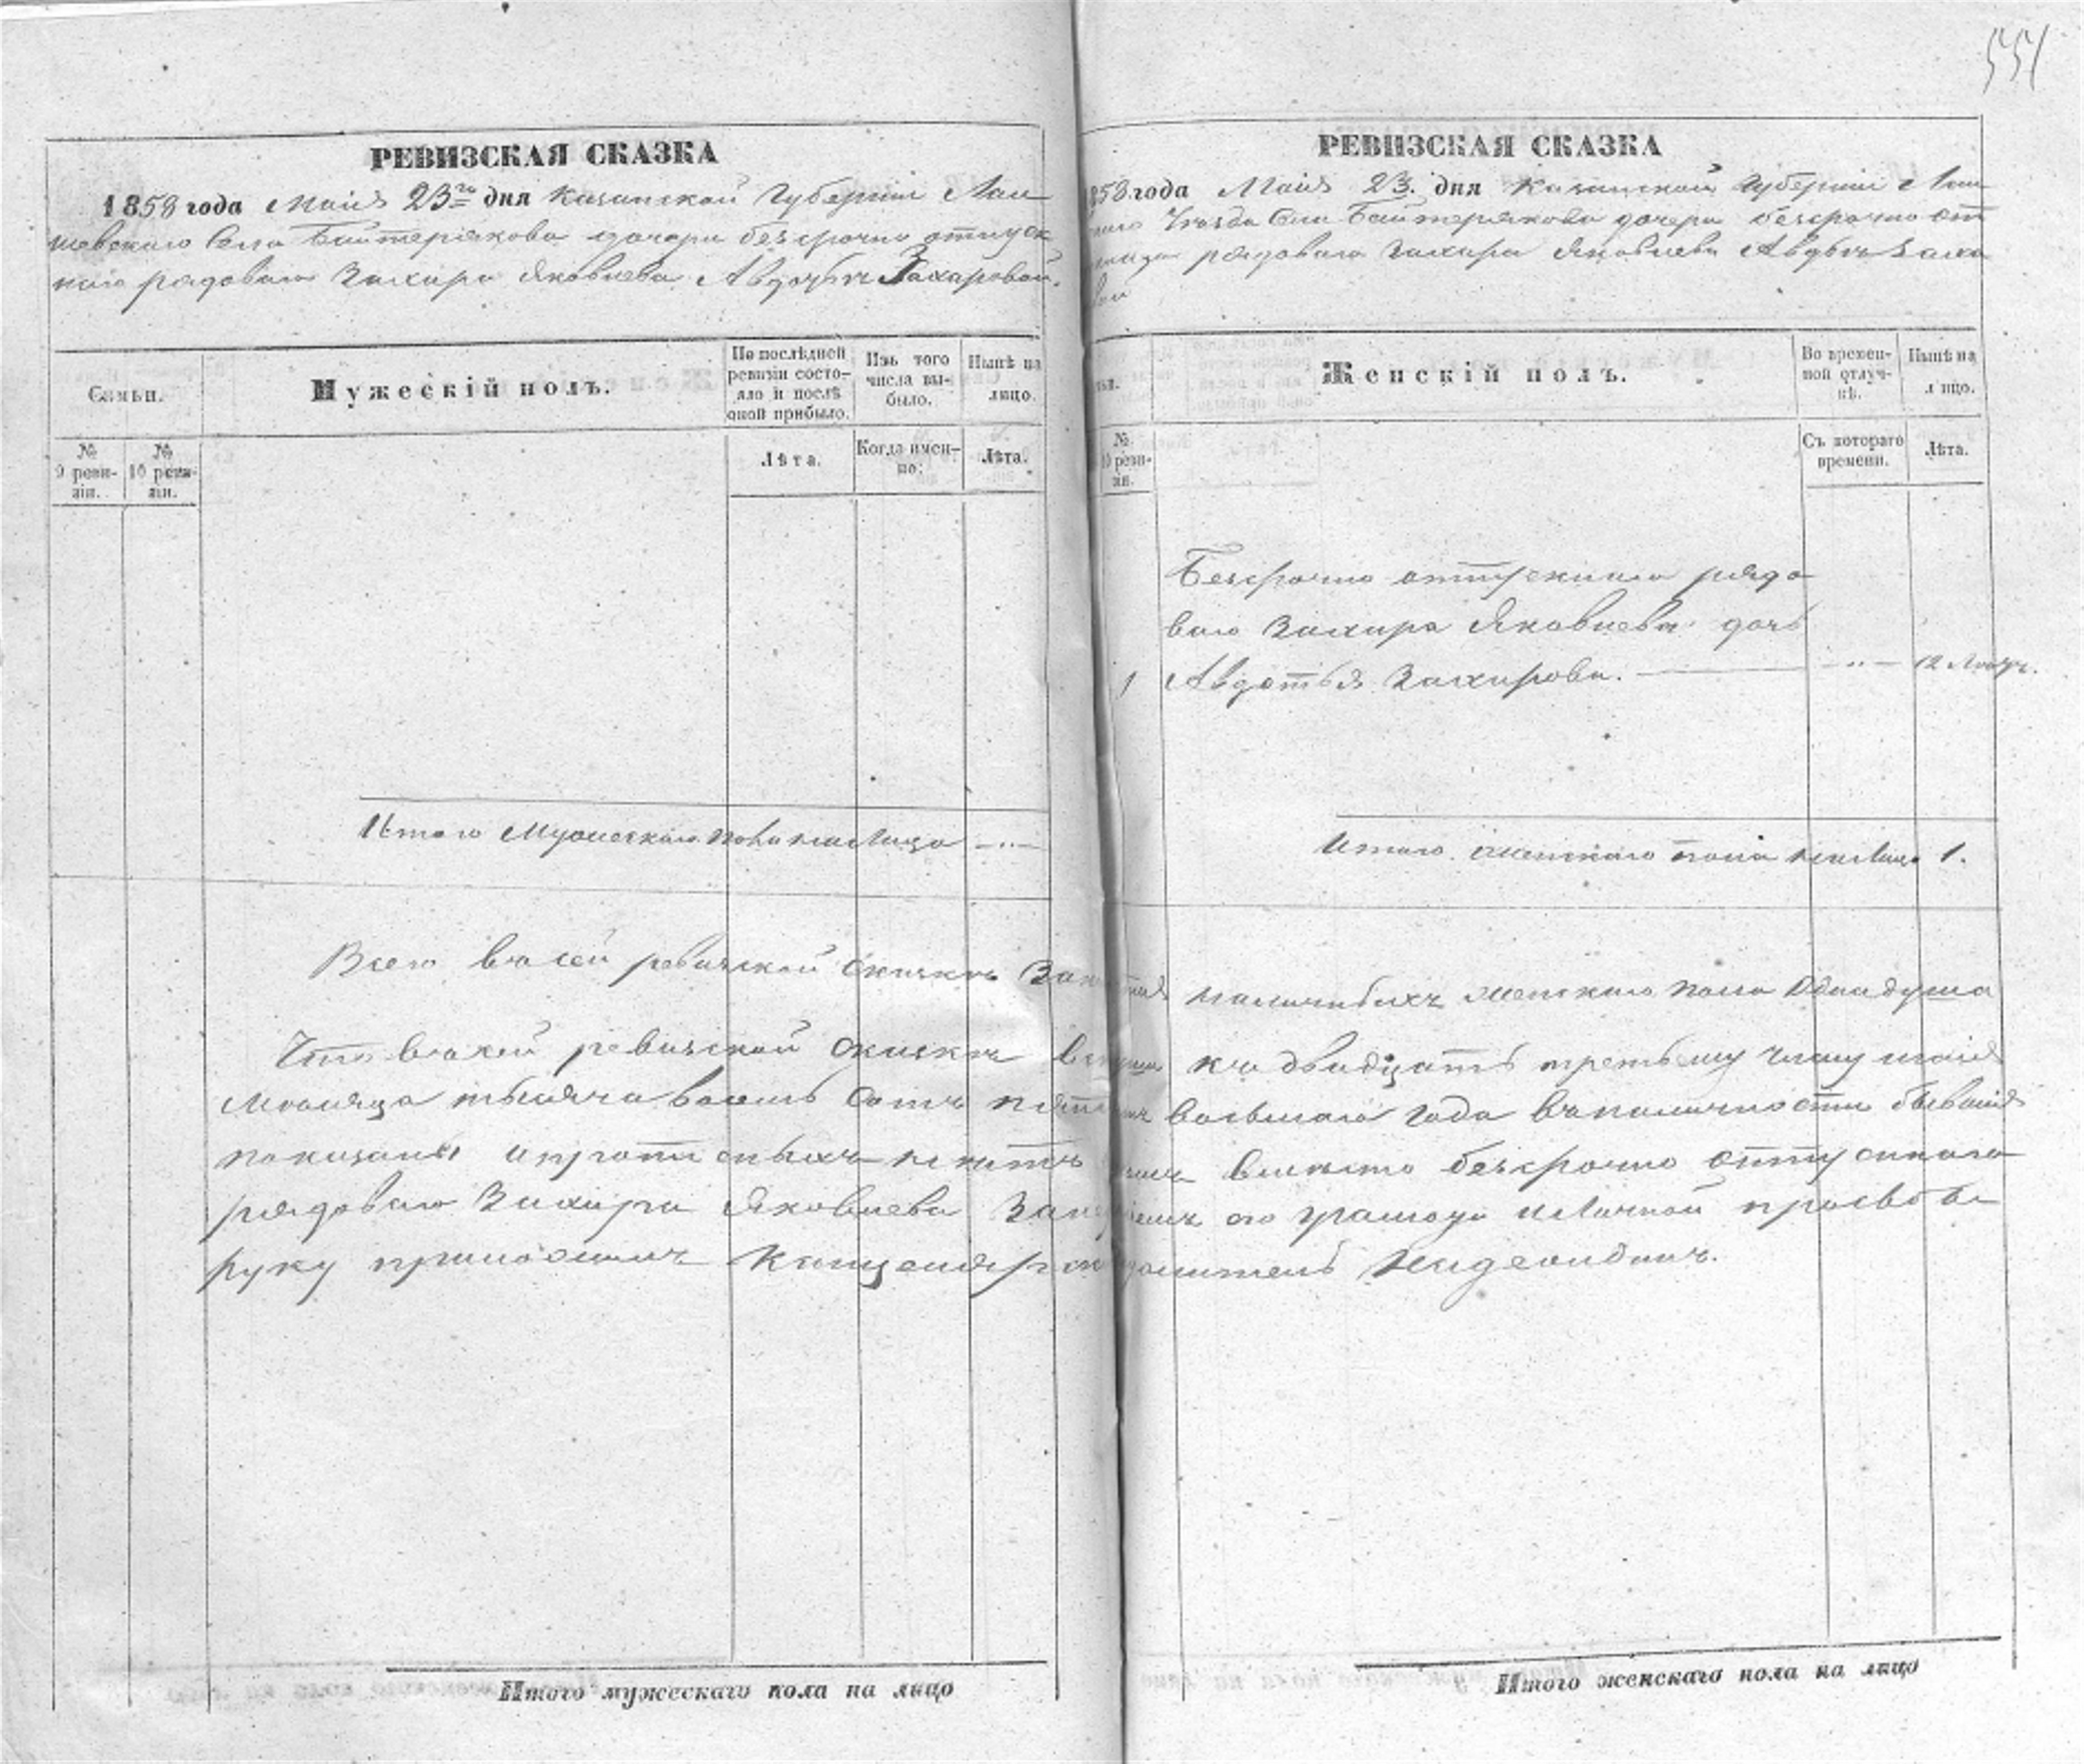 551
РЕВИЗСКАЯ СКАЗКА
1858 года Маія 23го дня Казанской Губерніи Лаи
шевскаго Села Баитерякова дочери безсрочно отпуск
наго рядоваго Захара Яковлева Авдотьи Захаровой.
Семьи.
Мужескій полъ.
По послѣдней ревизіи состояло и послѣ оной прибыло.
Изъ того числа выбыло.
Нынѣ на лицо.
№ 9 ревизіи.
№ 10 ревизіи.
Лѣта.
Когда именно:
Лѣта.
Итого Мужескаго пола на Лицо —„—
РЕВИЗСКАЯ СКАЗКА
858 года Маія 23. дня Казанской Губерніи Лаи
Уѣзда Села Баитерякова дочери безсрочно от
рядоваго Захара Яковлева Авдотьи Заха
вой
Женскій полъ.
Во временной отлучкѣ.
Нынѣ на лицо.
№ 10 ревизіи.
Съ котораго времени.
Лѣта.
Безсрочно отпускнаго рядо
ваго Захара Яковлева дочь
1 Авдотья Захарова. —„— 12
Итого женскаго пола на Лицо 1.
Всего въ сей ревизской сказкѣ наличныхъ женскаго пола Одна душа
Что въ сей ревизской сказкѣ къ двадцать третьему числу маія
Месяца тысяча восемь сотъ восьмаго года въ наличности бывшія
показаны и пропи вместо безсрочно отпускнаго
рядоваго Захара Яковлева его и Личной прозьбе
руку приложилъ
Итого мужескаго пола на лицо
Итого женскаго пола на лицо